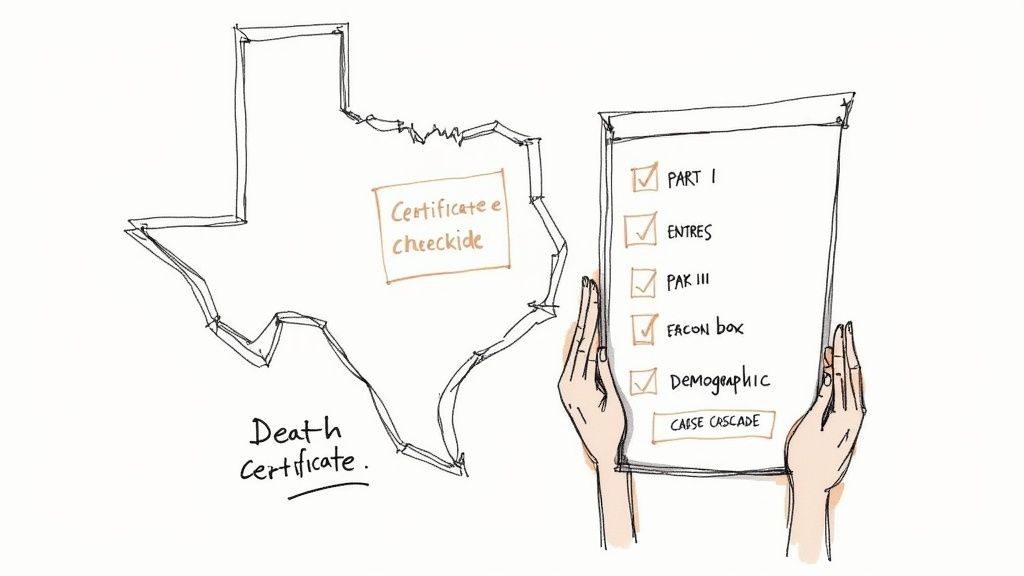 Certificate e
checckide
Death
Certificate.
PART I
ENTRES
PAK III
FACON box
Demographic
CASE CASCADE